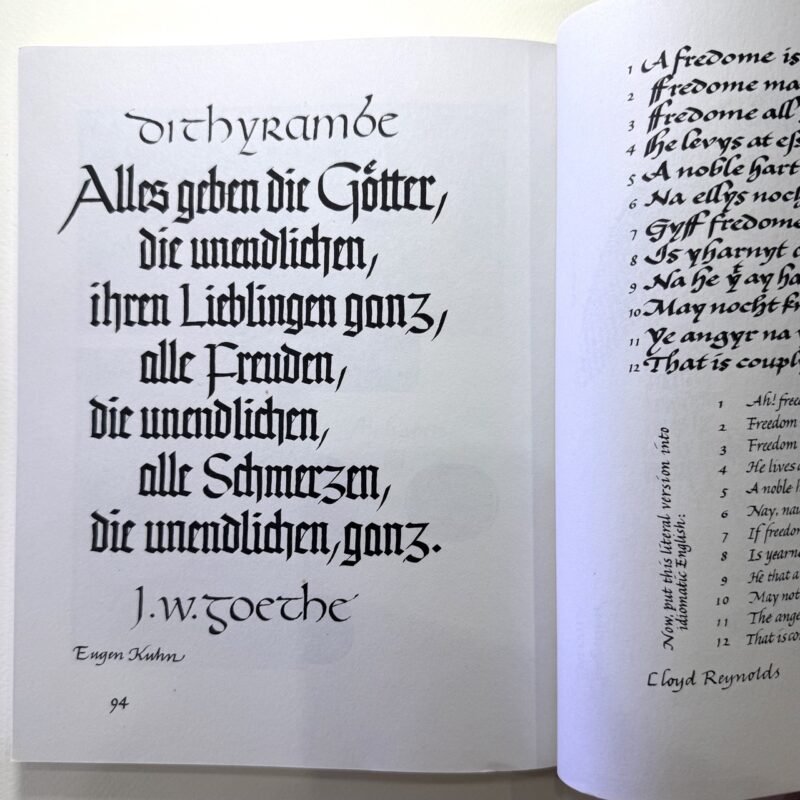 Dithyrambe
Alles geben die Götter,
die unendlichen,
ihren Lieblingen ganz,
alle Freuden,
die unendlichen,
alle Schmerzen,
die unendlichen, ganz.
J.W. Goethe
Eugen Kuhn
94
1 A fredome is
2 ffredome
3 ffredome all
4 he levys at
5 A noble hart
6 Na ellys
7 Gyff fredome
8 Is yharnyt
9 Na he ay
10 May nocht
11 Ye angyr na
12 That is
Now, put this literal version into
idiomatic English:
1 Ah!
2 Freedom
3 Freedom
4 He lives
5 A noble
6 Nay,
7 If
8 Is
9 He that a
10 May not
11 The
12 That is
Lloyd Reynolds